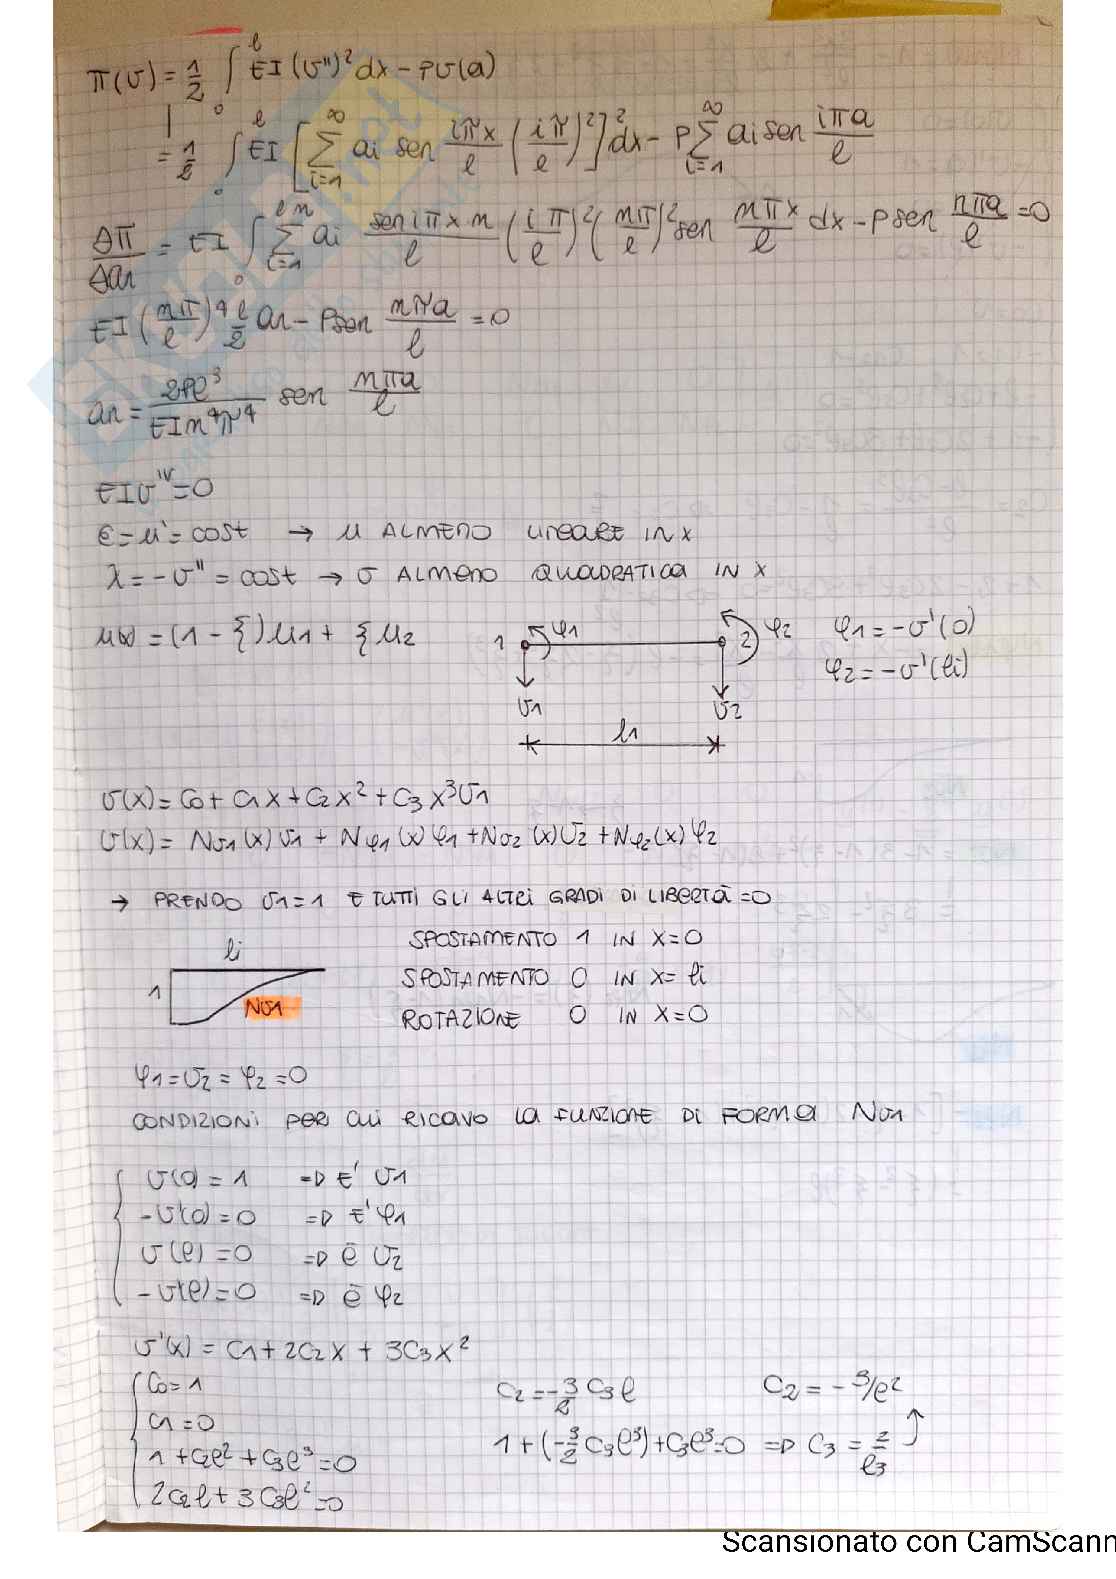 π(v) = 1/2 ∫₀^l EI (v'')² dx - Pv(a)
= 1/2 ∫₀^l EI [ ∑_{i=1}^∞ ai sen iπx/l (iπ/l)² ]² dx - P ∑_{i=1}^∞ ai sen iπa/l
Δπ/Δan = EI ∫₀^l ∑_{i=1}^n ai sen iπx n/l (iπ/l)² (nπ/l)² sen nπx/l dx - P sen nπa/l = 0
EI (nπ/l)⁴ l/2 an - P sen nπa/l = 0
an = 2Pl³/EIn⁴π⁴ sen nπa/l
EIv^IV = 0
ε = u' = cost → u ALMENO LINEARE IN x
λ = -v'' = cost → v ALMENO QUADRATICA IN x
u(x) = (1 - ξ)u1 + ξu2
1 φ1 2 φ2
φ1 = -v'(0)
φ2 = -v'(li)
v1 v2
l1
v(x) = C0 + C1x + C2x² + C3x³v1
v(x) = Nv1(x)v1 + Nφ1(x)φ1 + Nv2(x)v2 + Nφ2(x)φ2
→ PRENDO v1 = 1 E TUTTI GLI ALTRI GRADI DI LIBERTÀ = 0
li
1 Nv1
SPOSTAMENTO 1 IN X=0
SPOSTAMENTO 0 IN X=li
ROTAZIONE 0 IN X=0
φ1 = v2 = φ2 = 0
CONDIZIONI PER CUI RICAVO LA FUNZIONE DI FORMA Nv1
v(0) = 1 => E' v1
-v'(0) = 0 => E' φ1
v(l) = 0 => è v2
-v'(l) = 0 => è φ2
v'(x) = C1 + 2C2x + 3C3x²
C0 = 1
C1 = 0
1 + C2l² + C3l³ = 0
2C2l + 3C3l² = 0
C2 = -3/2 C3l
C2 = -3/l²
1 + (-3/2 C3l³) + C3l³ = 0 => C3 = 2/l3
Scansionato con CamScann